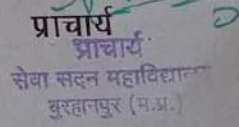 प्राचार्य
प्राचार्य
सेवा सदन महाविद्यालय
बुरहानपुर (म.प्र.)